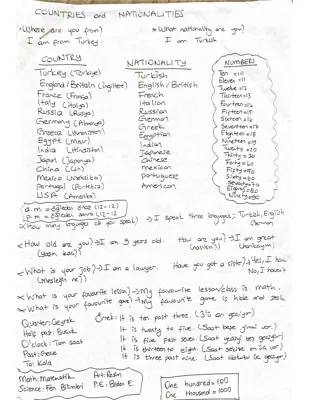 COUNTRIES and NATIONALITIES
*Where are you from?
* What nationality are you?
I am from Turkey.
I am Turkish
COUNTRY
Turkey (Türkiye)
England/Britain (İngiltere)
France (Fransa)
Italy (İtalya)
Russia (Rusya)
Germany (Almanya)
Greece (Yunanistan)
Egypt (Mısır)
India (Hindistan)
Japan (Japonya)
China (Çin)
Mexico (Meksika)
Portugal (Portekiz)
USA (Amerika)
NATIONALITY
Turkish
English / British
French
Italian
Russian
German
Greek
Egyptian
Indian
Japanese
Chinese
Mexican
Portuguese
American
NUMBERS
Ten = 10
Eleven = 11
Twelve = 12
Thirteen = 13
Fourteen
Fifteen = 15
Sixteen = 16
Seventeen = 17
Eighteen = 18
Nineteen = 19
Twenty = 20
Thirty = 30
Forty = 40
Fifty = 50
Sixty = 60
Seventy = 70
Eighty = 80
Ninety = 90
a.m =
p.m =
(12-12)
I speak three languages; Turkish, English
German
*How old are you? → I am 9 years old.
How are you? → I am great
(nasılsın)
(harikayım)
*What is your job? → I am a lawyer.
(mesleğin ne)
Have you got a sister? → Yes, I have
No, I haven't
*What is your favorite lesson? → My favourite lesson/class is math.
*What is your favourite game? → My favourite game is hide and seek
Quarter: Çeyrek
Half past: Buçuk
O'clock: Tam saat
Past: Geçe
To: Kala
Örnek: It is ten past three. (3'ü on geçiyor)
It is twenty to five. (Saat beşe yirmi var.)
It is five past seven. (Saat yediyi beş geçiyor)
It is thirteen to eight. (Saat sekize on üç var)
It is three past nine. (Saat dokuzu üç geçiyor)
Math: Matematik
Art: Resim
Science: Fen Bilimleri
P.E: Beden E.
One hundred = 100
One thousand = 1000